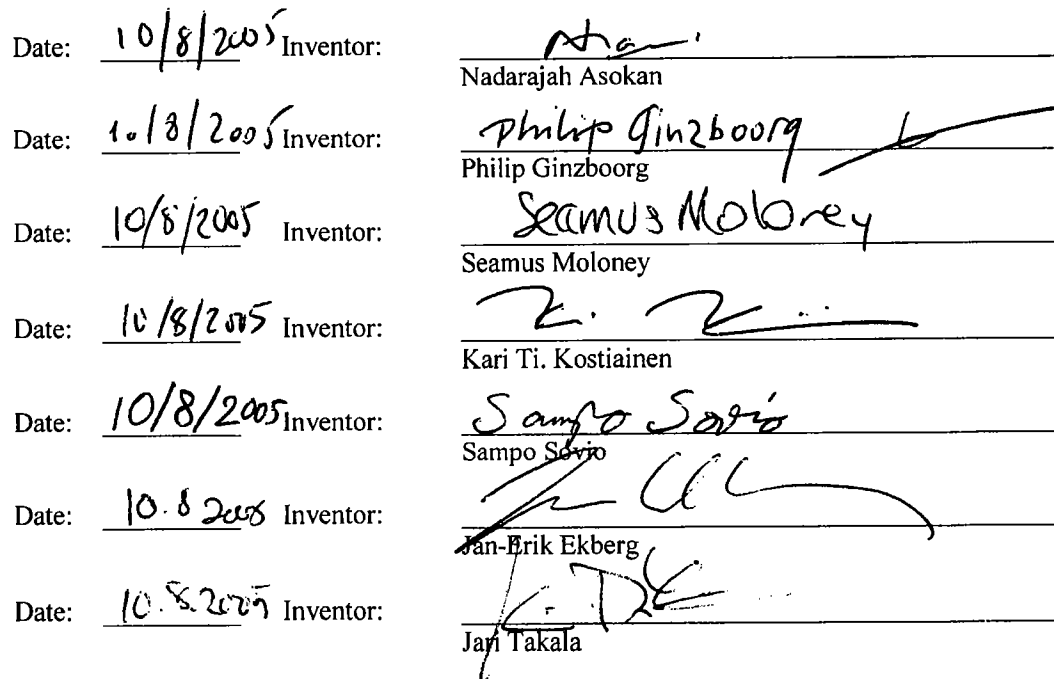 Date: 10/8/2005 Inventor:
Nadarajah Asokan
Date: 10/8/2005 Inventor: Philip Ginzboorg
Philip Ginzboorg
Date: 10/8/2005 Inventor: Seamus Moloney
Seamus Moloney
Date: 10/8/2005 Inventor:
Kari Ti. Kostiainen
Date: 10/8/2005 Inventor: Sampo Sovio
Sampo Sovio
Date: 10.8 2005 Inventor:
Jan-Erik Ekberg
Date: 10.8.2005 Inventor:
Jari Takala